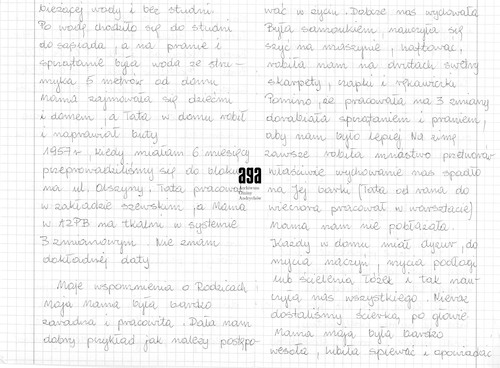 bieżącej wody i bez studni
Po wodę chodziło się do studni
do sąsiada, a na pranie i
sprzątanie była woda ze stru-
myka 5 metrów od domu
Mama zajmowała się dziećmi
i domem, a Tata w domu robił
i naprawiał buty
1957 r, kiedy miałam 6 miesięcy
przeprowadziliśmy się do bloku
na ul. Olszyny. Tata pracował
w zakładzie szewskim, a Mama
w AZPB na tkalni w systemie
3 zmianowym. Nie znam
dokładnej daty
Moje wspomnienia o Rodzicach
Moja Mama była bardzo
zaradna i pracowita. Dała nam
dobry przykład jak należy postępo-
wać w życiu. Dobrze nas wychowała
Była samoukiem nauczyła się
szyć na maszynie, haftować,
robiła nam na drutach swetry
skarpety, czapki i rękawiczki
Pomimo, że pracowała na 3 zmiany
dorabiała sprzątaniem i praniem,
aby nam było lepiej Na zimę
zawsze robiła mnóstwo przetworów
właściwie wychowanie nas spadło
na Jej barki (Tata od rana do
wieczora pracował w warsztacie)
Mama nam nie pobłażała.
Każdy w domu miał dyżur, do
mycia naczyń, mycia podłogi
lub ścielenia łóżek i tak nau-
czyła nas wszystkiego. Nieraz
dostaliśmy ścierką po głowie
Mama moja była bardzo
wesoła, lubiła śpiewać i opowiadać
aga
Archiwum
Gminy
Andrychów